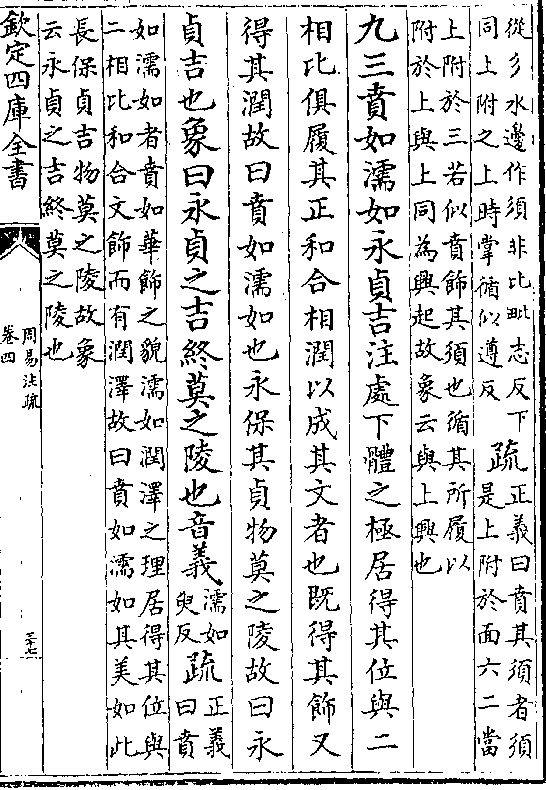 從彡水邊作須非比毗志反下
同上附之上時掌循似遵反
疏
正義曰賁其須者須
是上附於面六二當
上附於三若似賁飾其須也循其所履以
附於上與上同為興起故象云與上興也
九三賁如濡如永貞吉注處下體之極居得其位與二
相比俱履其正和合相潤以成其文者也既得其飾又
得其潤故曰賁如濡如也永保其貞物莫之陵故曰永
貞吉也象曰永貞之吉終莫之陵也音義
濡如
臾反
疏
正義
曰賁
如濡如者賁如華飾之貌濡如潤澤之理居得其位與
二相比和合文飾而有潤澤故曰賁如濡如其美如此
長保貞吉物莫之陵故象
云永貞之吉終莫之陵也
欽定四庫全書
周易注疏
卷四
三十七